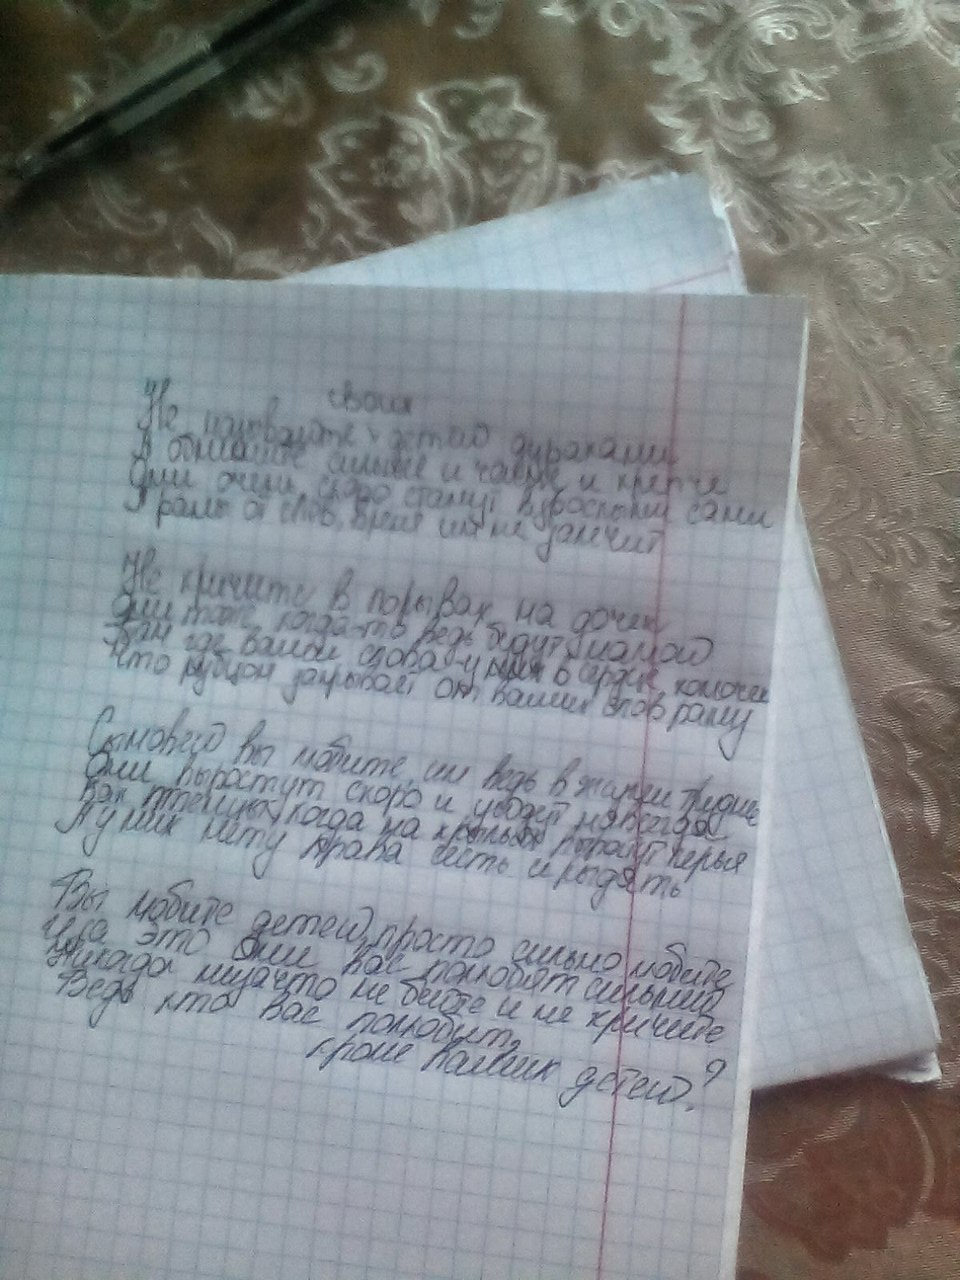 своих
Не называйте детей дураками
А обнимайте сильнее и чаще и крепче
Они очень скоро станут взрослыми сами
И раны от слов, время им не залечит
Не кричите в порывах на дочек
Они тоже когда-то ведь будут мамой
Там где вашей слова у них в сердце комочек
Что рубцом закрывает от ваших слов рану
Сыновей вы любите, им ведь в жизни труднее
Они вырастут скоро и уйдут навсегда
Как птенцы, когда на крыльях вырастут перья
А у них нету права сесть и рыдать
Вы любите детей, просто сильно любите
И за это они вас полюбят сильней
Никогда низачто не бейте и не кричите
Ведь кто вас полюбит,
кроме ваших детей?